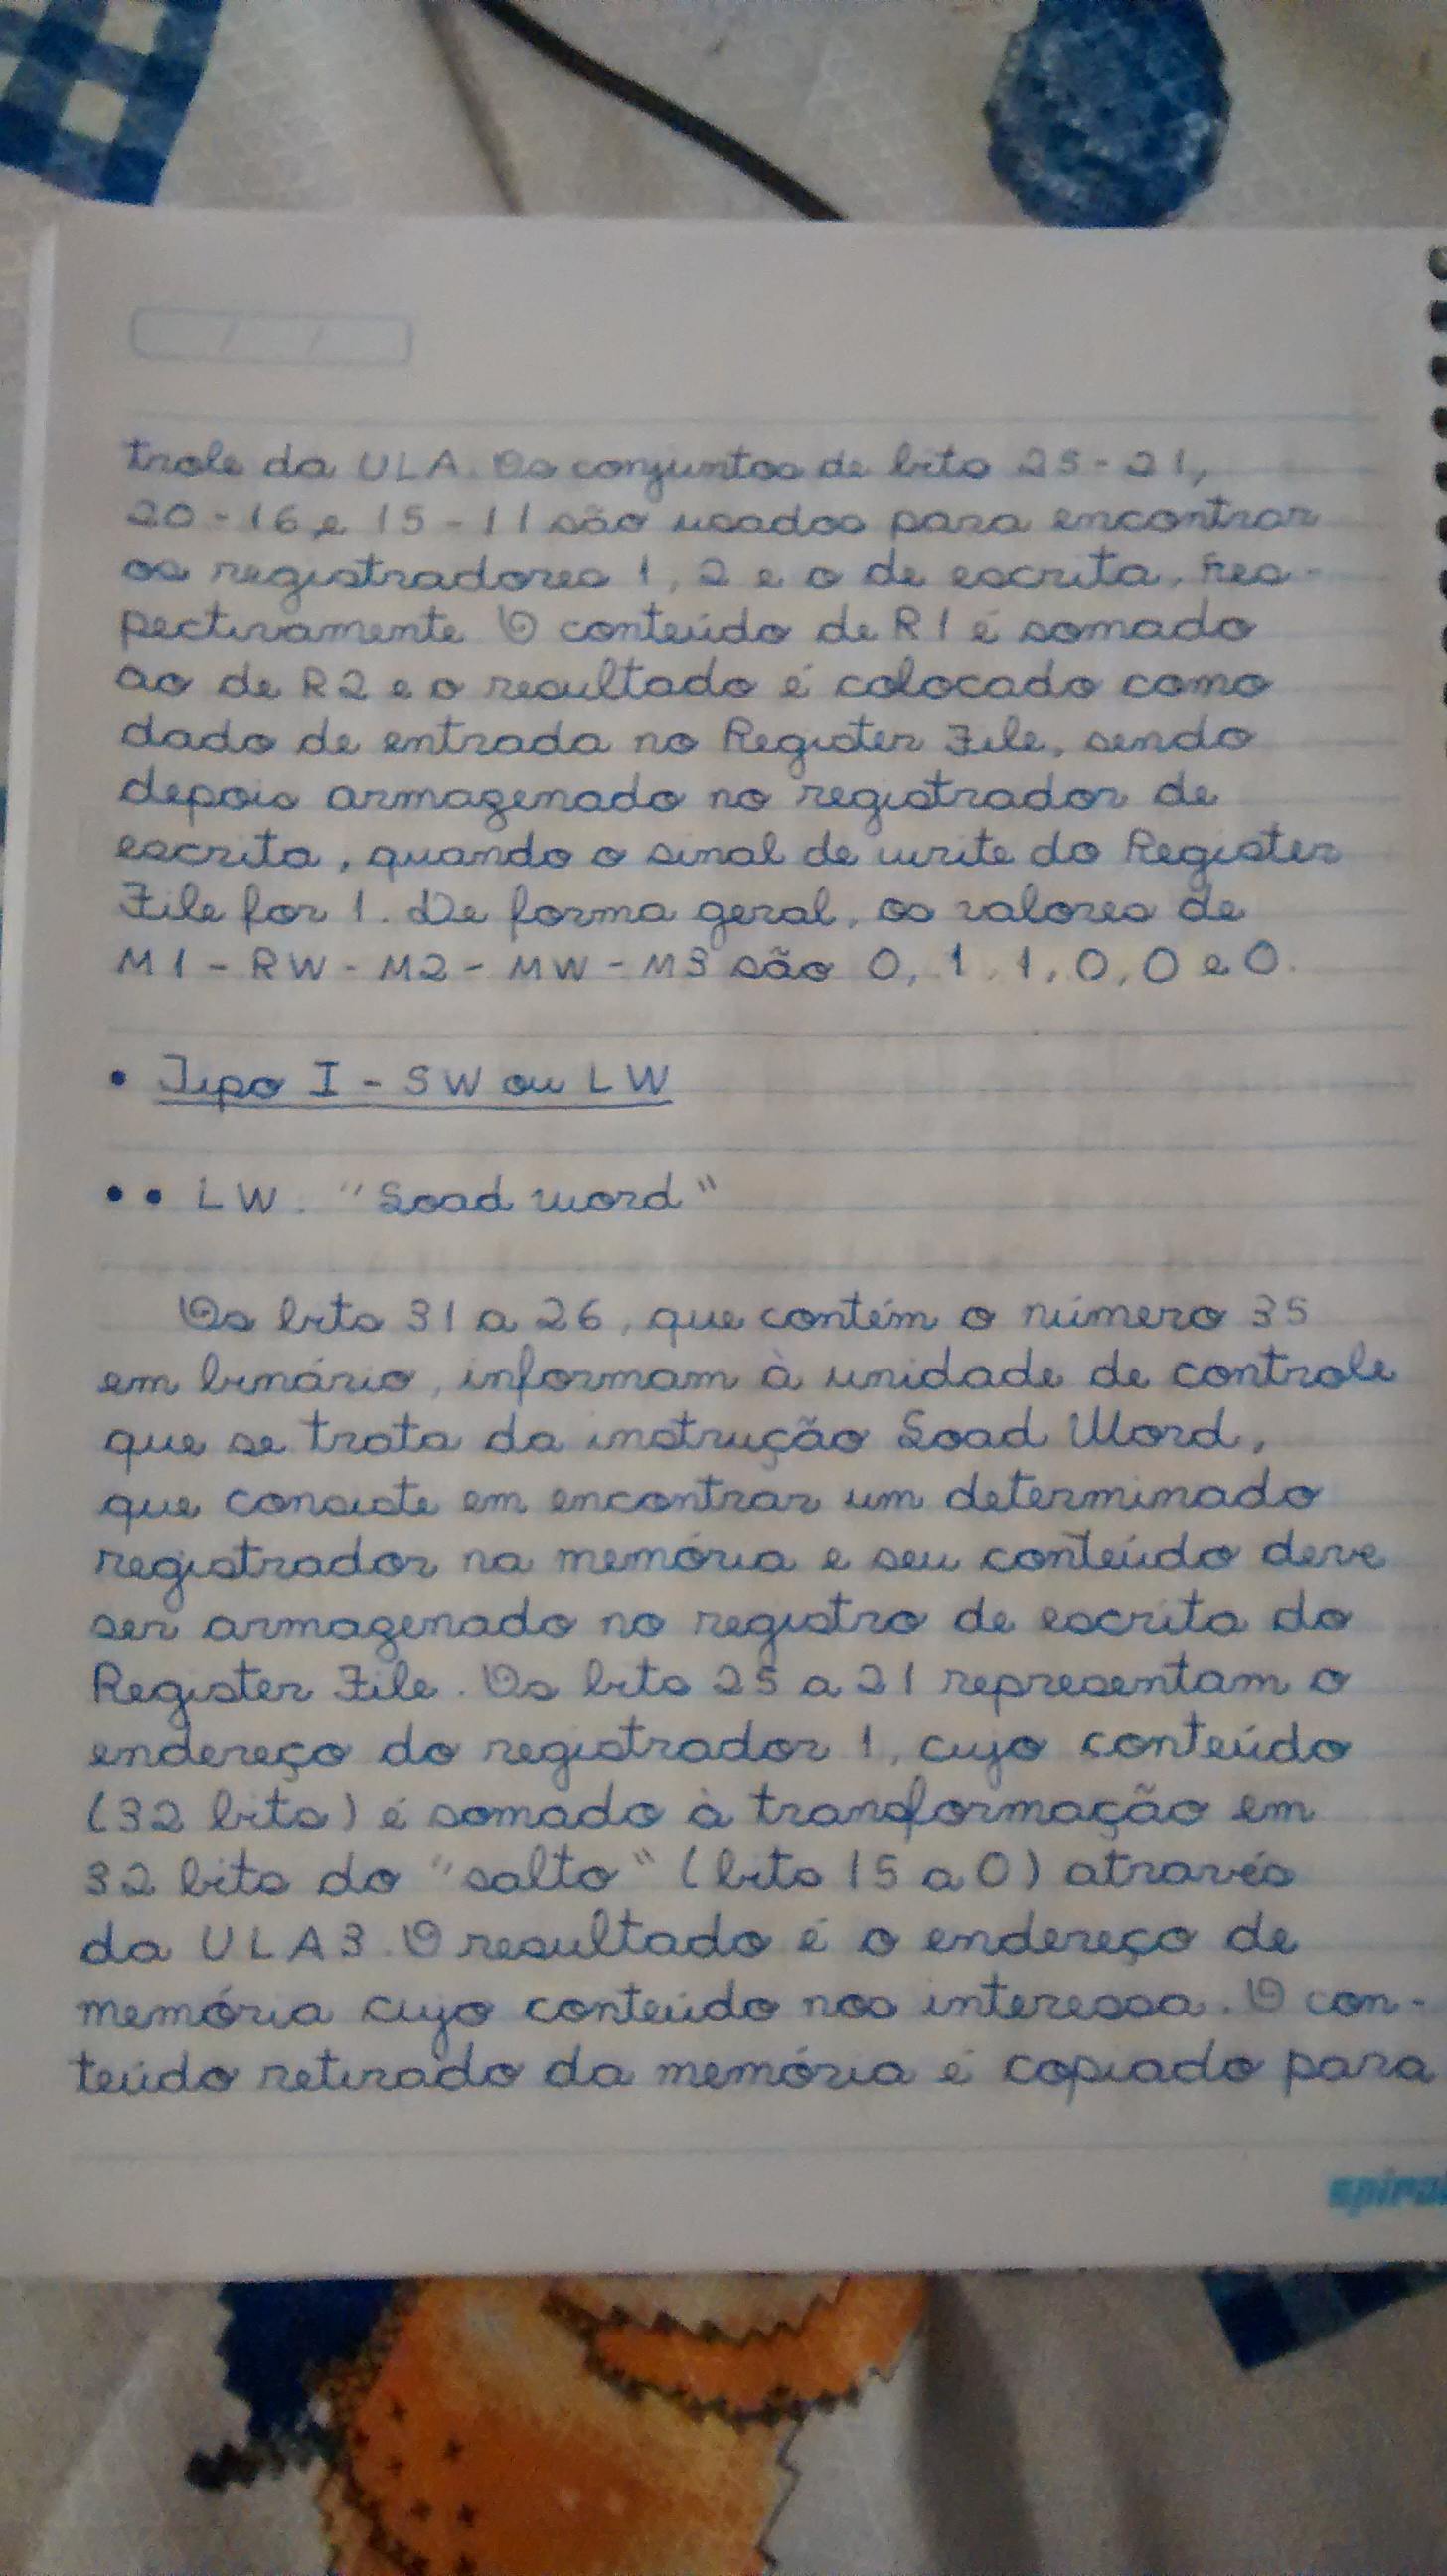 trole da ULA. Os conjuntos de bits 25-21,
20-16 e 15-11 são usados para encontrar
os registradores 1, 2 e o de escrita, res-
pectivamente. O conteúdo de R1 é somado
ao de R2 e o resultado é colocado como
dado de entrada no Register File, sendo
depois armazenado no registrador de
escrita, quando o sinal de write do Register
File for 1. De forma geral, os valores de
M1 - RW - M2 - MW - M3 são 0, 1, 1, 0, 0 e 0.
• Tipo I - SW ou LW
• • LW. "Load word"
Os bits 31 a 26, que contém o número 35
em binário, informam à unidade de controle
que se trata da instrução Load Word,
que consiste em encontrar um determinado
registrador na memória e seu conteúdo deve
ser armazenado no registro de escrita do
Register File. Os bits 25 a 21 representam o
endereço do registrador 1, cujo conteúdo
(32 bits) é somado à transformação em
32 bits do "salto" (bits 15 a 0) através
da ULA3. O resultado é o endereço de
memória cujo conteúdo nos interessa. O con-
teúdo retirado da memória é copiado para